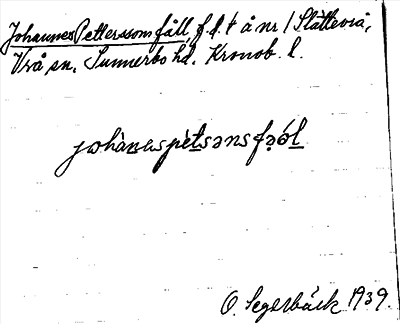 Johannes Petterssom fåll, f.d. t å nr 1 Slättevrå,
Vrå sn. Sunnerbo hd. Kronob. l.
johànəs pètsəns fəól
O. Segerbäck 1939.